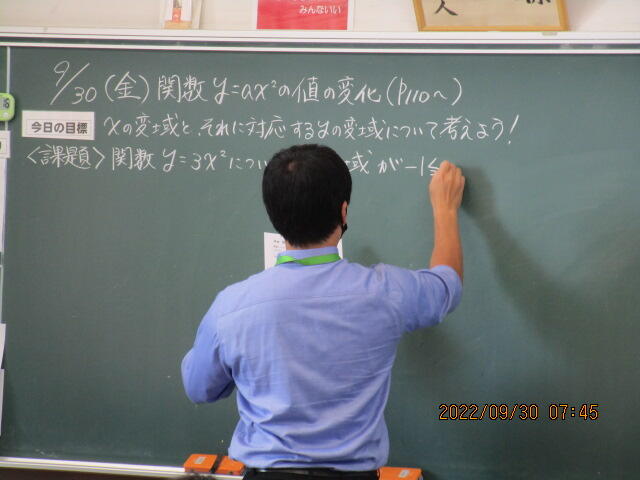 みんないい
9/30(金) 関数 y=ax²の値の変化(P110~)
今日の目標 xの変域と、それに対応するyの変域について考えよう!
<課題> 関数 y=3x²につい 域 が -1≦
2022/09/30 07:45